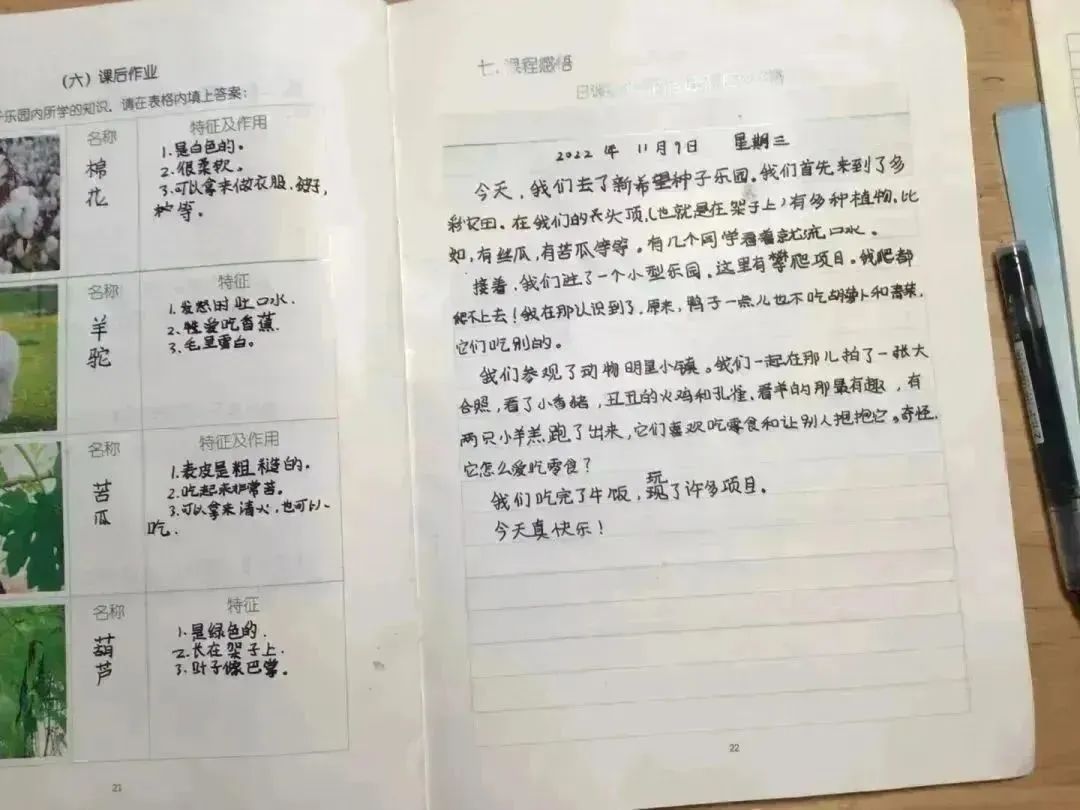 (六) 课后作业
子乐园内所学的知识,请在表格内填上答案:
名称
棉花
特征及作用
1.是白色的。
2.很柔软。
3.可以拿来做衣服、
等。
名称
羊驼
特征
1.发怒时吐口水.
2.性爱吃香蕉.
3.毛里雪白。
名称
苦瓜
特征及作用
1.表皮是粗糙的。
2.吃起来非常苦。
3.可以拿来清火,也可以
吃.
名称
葫芦
特征
1.是绿色的.
2.长在架子上.
3.叶子像巴掌。
21
七、课程感悟
2022年 11月9日 星期三
今天,我们去了新希望种子乐园。我们首先来到了多
彩农田。在我们的头顶,(也就是在架子上)有多种植物。比
如,有丝瓜,有苦瓜等等。有几个同学看着就流口水。
接着,我们进了一个小型乐园。这里有攀爬项目。我爬都
爬不上去!我在那认识到了,原来,鸭子一点儿也不吃胡萝卜和青菜,
它们吃别的。
我们参观了动物明星小镇。我们一起在那儿拍了一张大
合照,看了小香猪,丑丑的火鸡和孔雀,看羊的那最有趣,有
两只小羊羔跑了出来,它们喜欢吃零食和让别人抱抱它。奇怪,
它怎么爱吃零食?
玩
我们吃完了午饭,现了许多项目。
今天真快乐!
22